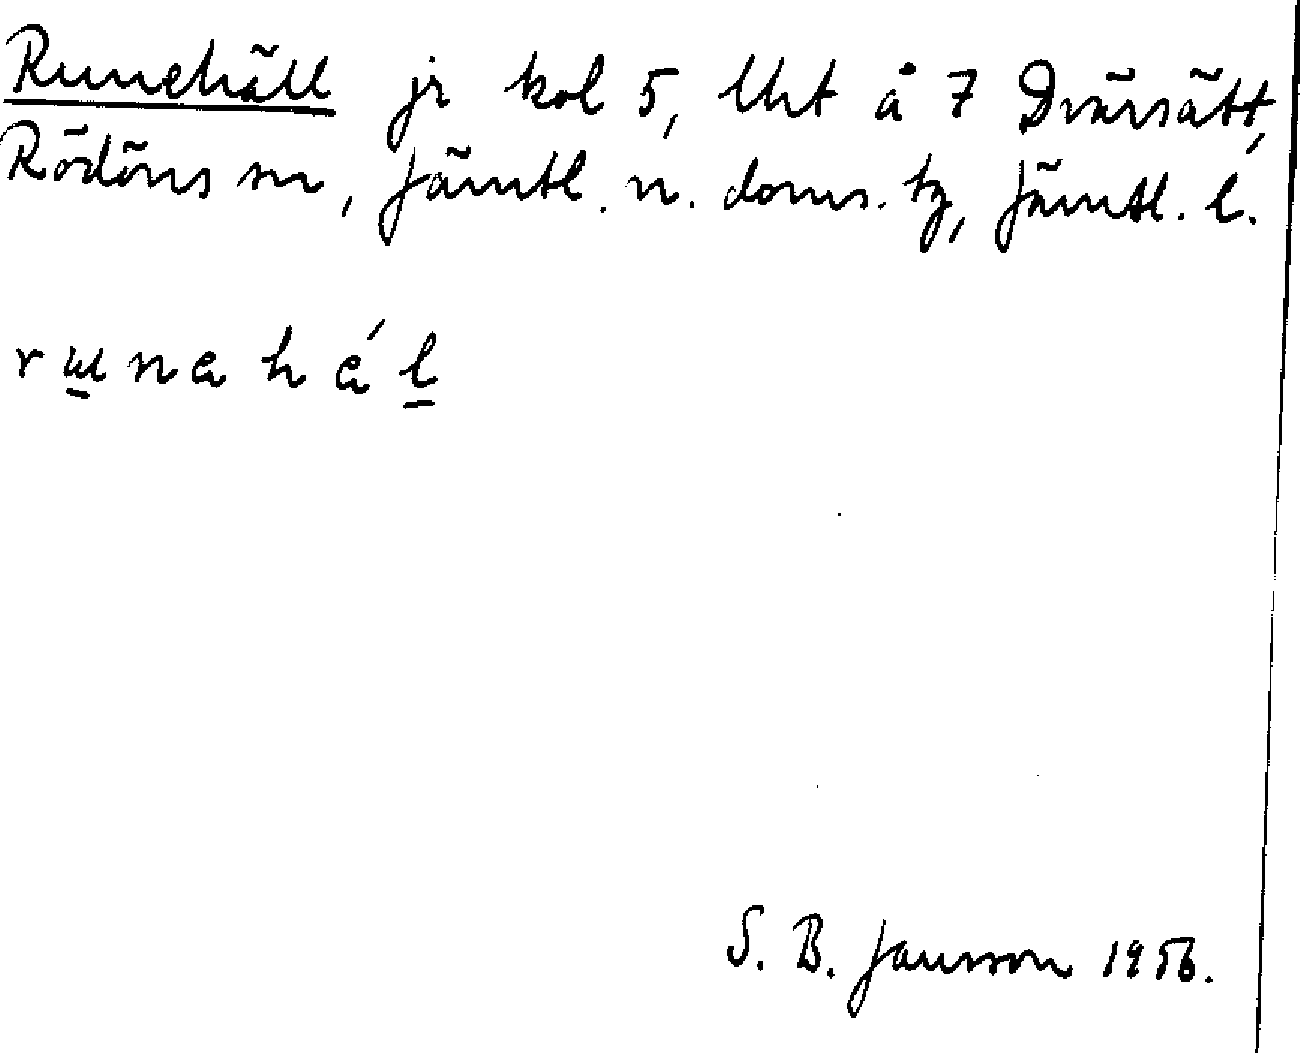 Runehäll jr kol 5, Utrt å 7 Dvärsätt,
Rödöns sn, Jämtl. n. doms. tg, Jämtl. l.
r u̲ n a h á l̲
S. B. Jansson 1956.